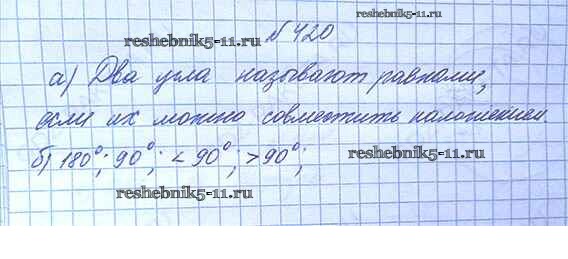 reshebnik5-11.ru
№ 420
reshebnik5-11.ru
а) Два угла называют равными,
если их можно совместить наложением.
б) 180°; 90°; < 90°; > 90°;
reshebnik5-11.ru
reshebnik5-11.ru